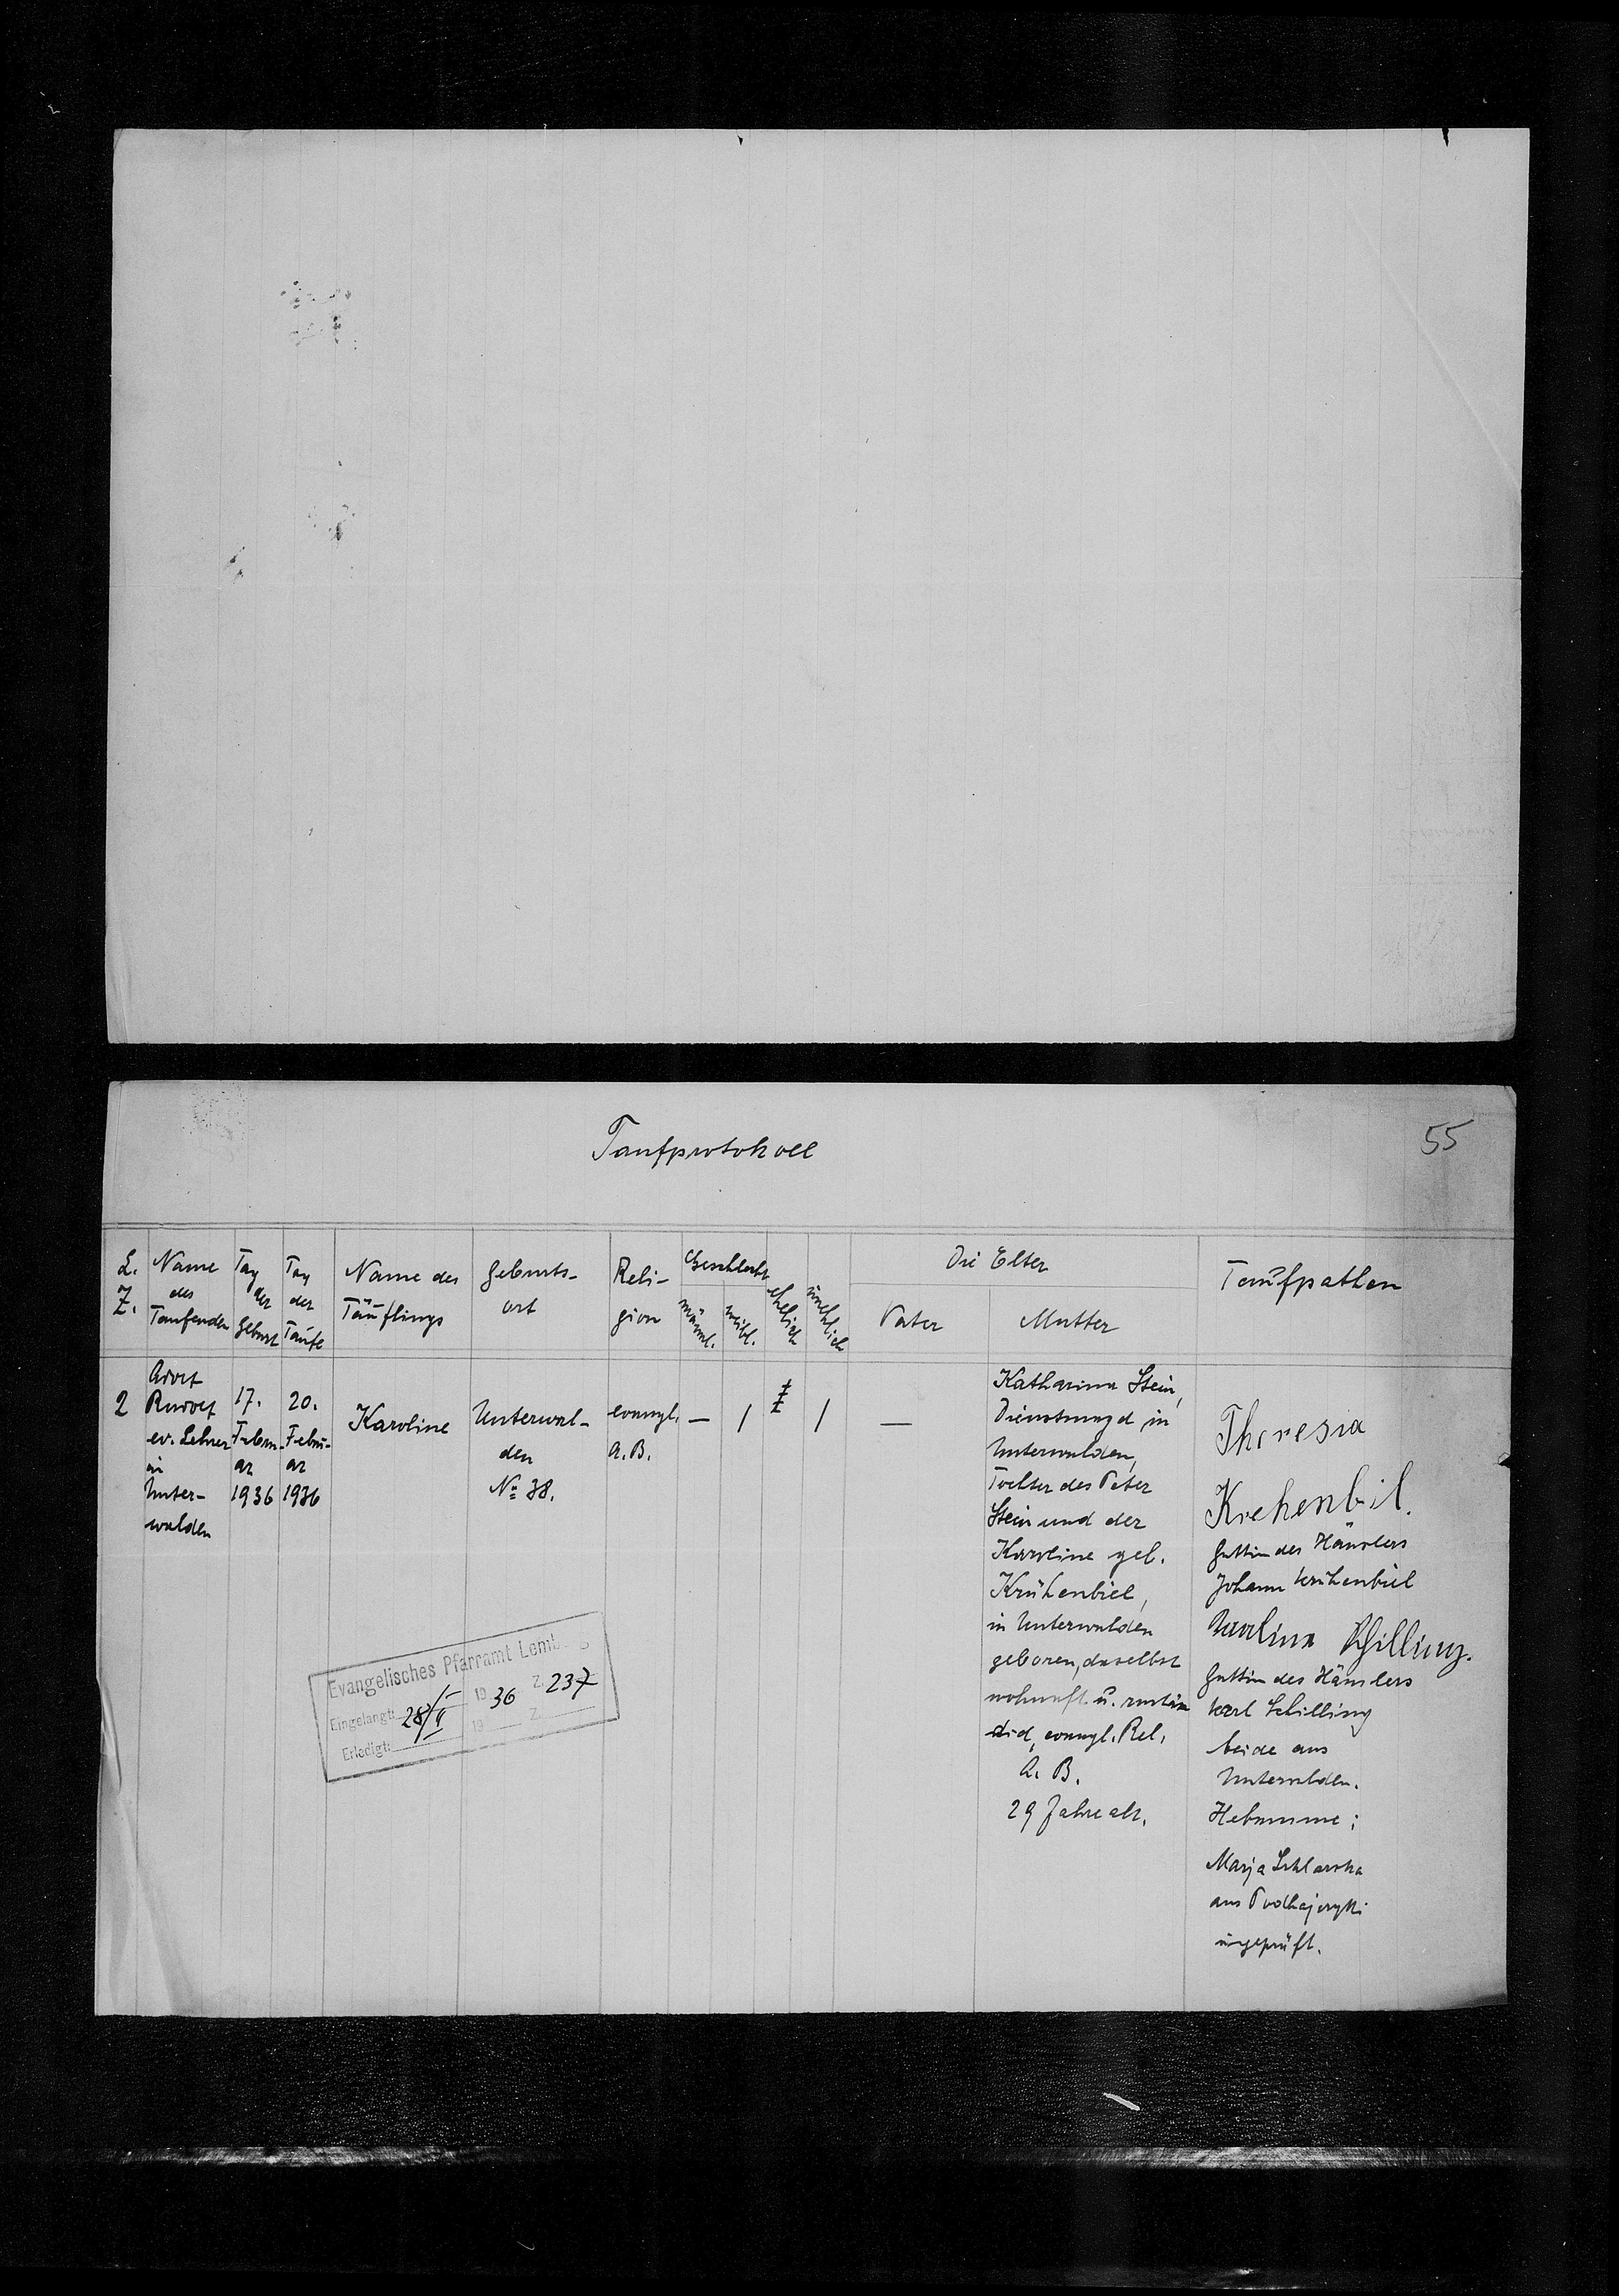 Taufprotokoll
55
L. Z.
Name des Taufenden
Tag der Geburt
Tag der Taufe
Name des Täuflings
Geburts-
ort
Reli-
gion
Geschlecht
männl.
weibl.
ehelich
unehlich
Die Elter
Vater
Mutter
Taufpathen
2
Adolf
Rudolf
ev. Lehrer
in
Unter-
walden
17.
Febru-
ar
1936
20.
Febru-
ar
1936
Karoline
Unterwal-
den
No 38.
evangl.
A. B.
—
1
1
—
Katharina Stein,
Dienstmagd in
Unterwalden,
Tochter des Peter
Stein und der
Karoline geb.
Krühenbiel,
in Unterwalden
geboren, daselbst
wohnhft. u. zustän
did, evangl. Rel.
A. B.
29 Jahre alt.
Theresia
Krehenbil.
Gattin des Häuslers
Johann Krühenbiel
Karolina Schilling.
Gattin des Häuslers
Karl Schilling
beide aus
Unterwalden.
Hebamme:
Marja
aus Podhajczyki
ungeprüft.
Evangelisches Pfarramt Lemberg
Eingelangt: 28/II 1936 Z. 237
Erledigt: 19 Z.